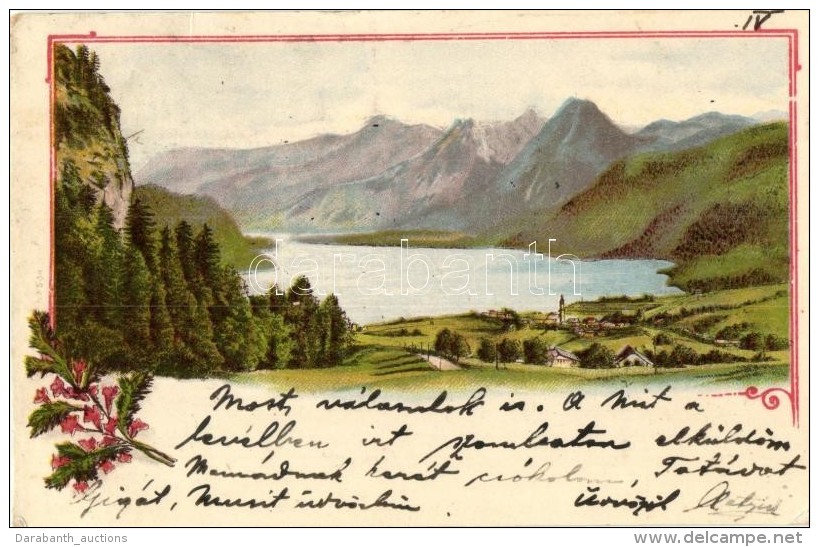 IV
darabanth
Most, válaszolok is. A mit a
levélben irt szombaton elküldöm
Mamádnak kezét csókolom, Tatávat
Gigát, Musit üdvözlöm
Üdvözöl
Darabanth_auctions
www.delcampe.net